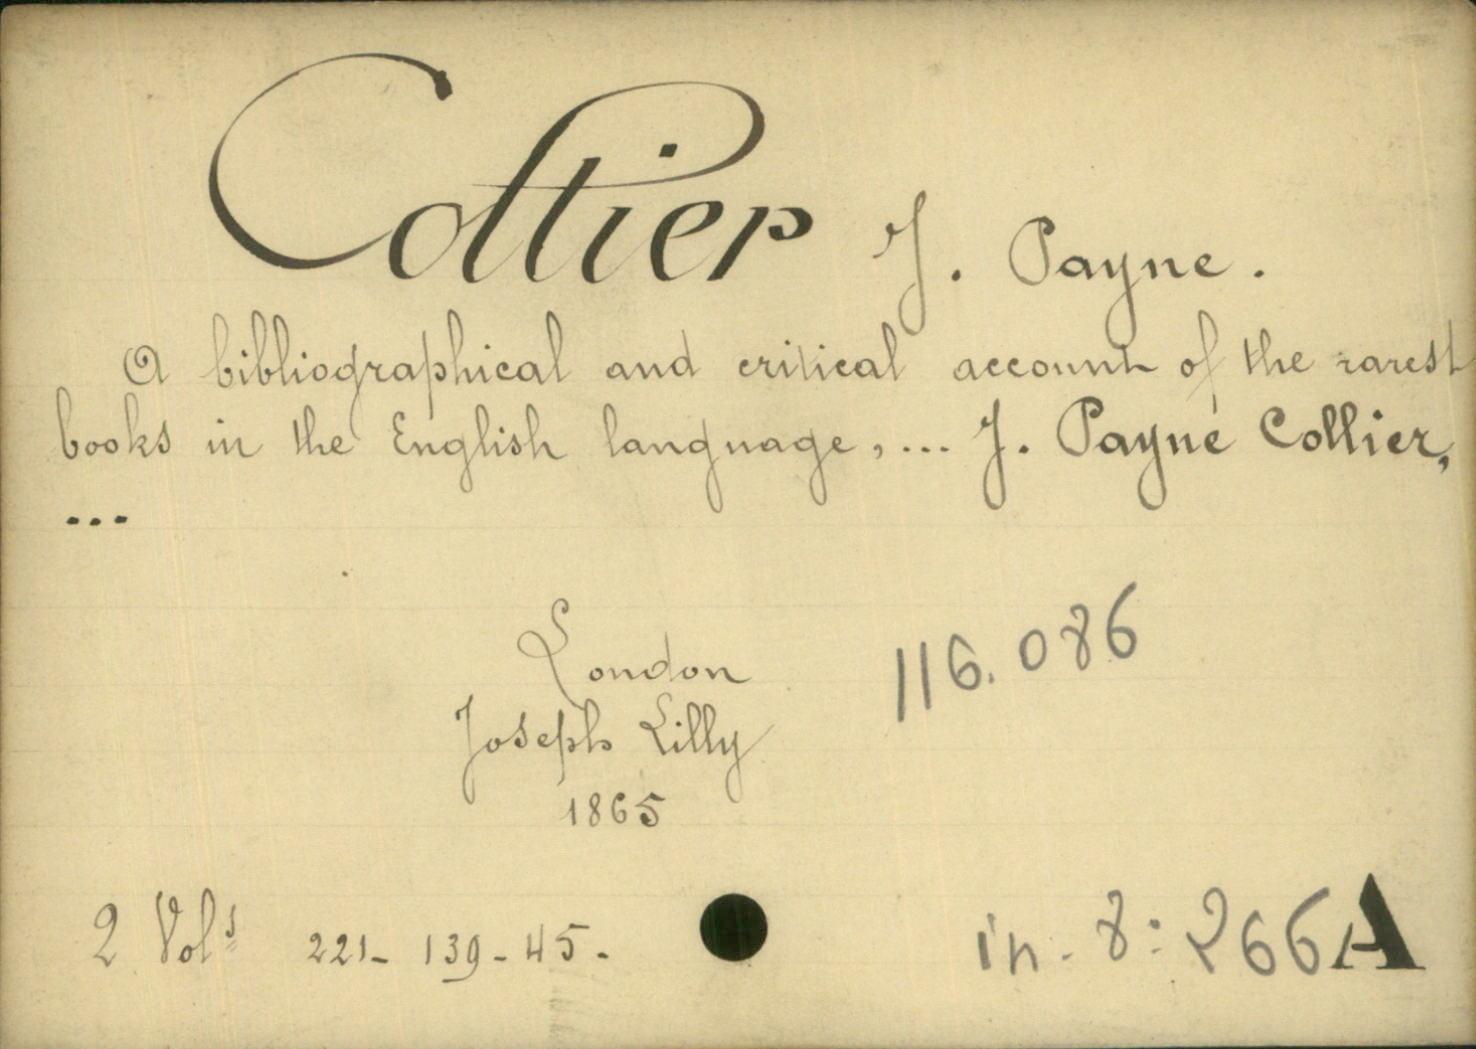 Collier J. Payne.
A bibliographical and critical account of the rarest
books in the English language, ... J. Payne Collier,
...
London
116.086
Joseph Lilly
1865
2 Vols 221- 139- 45- in-8: 266A